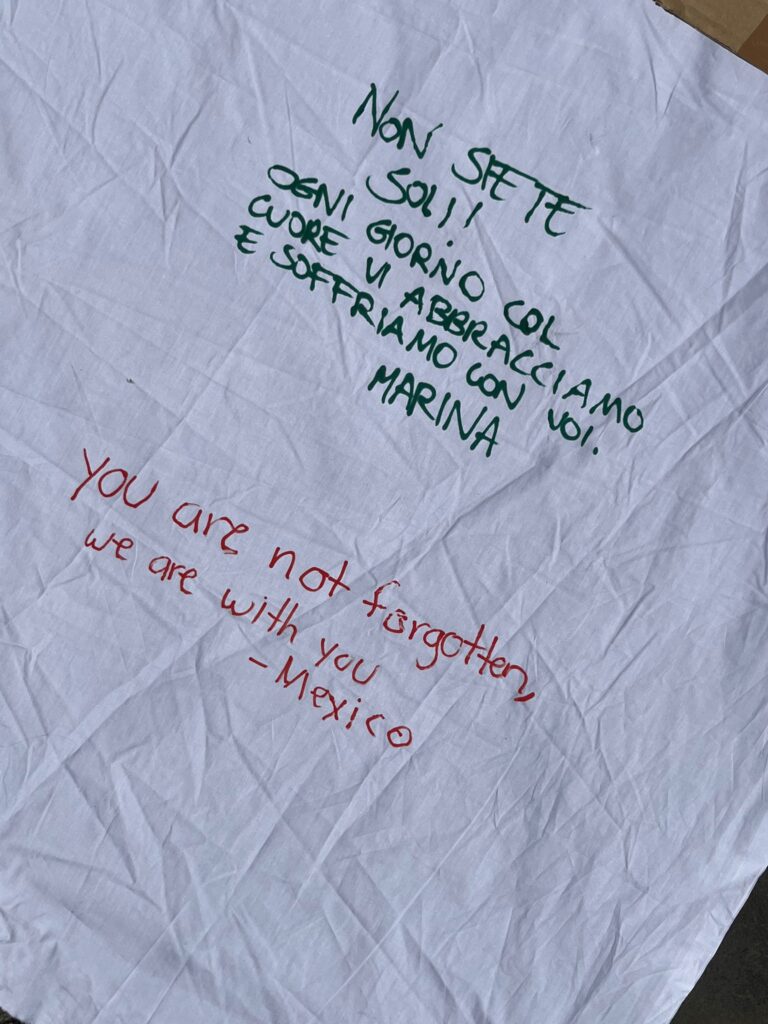 NON SIETE
SOLI!
OGNI GIORNO COL
CUORE VI ABBRACCIAMO
E SOFFRIAMO CON VOI.
MARINA
You are not forgotten,
we are with you
- Mexico